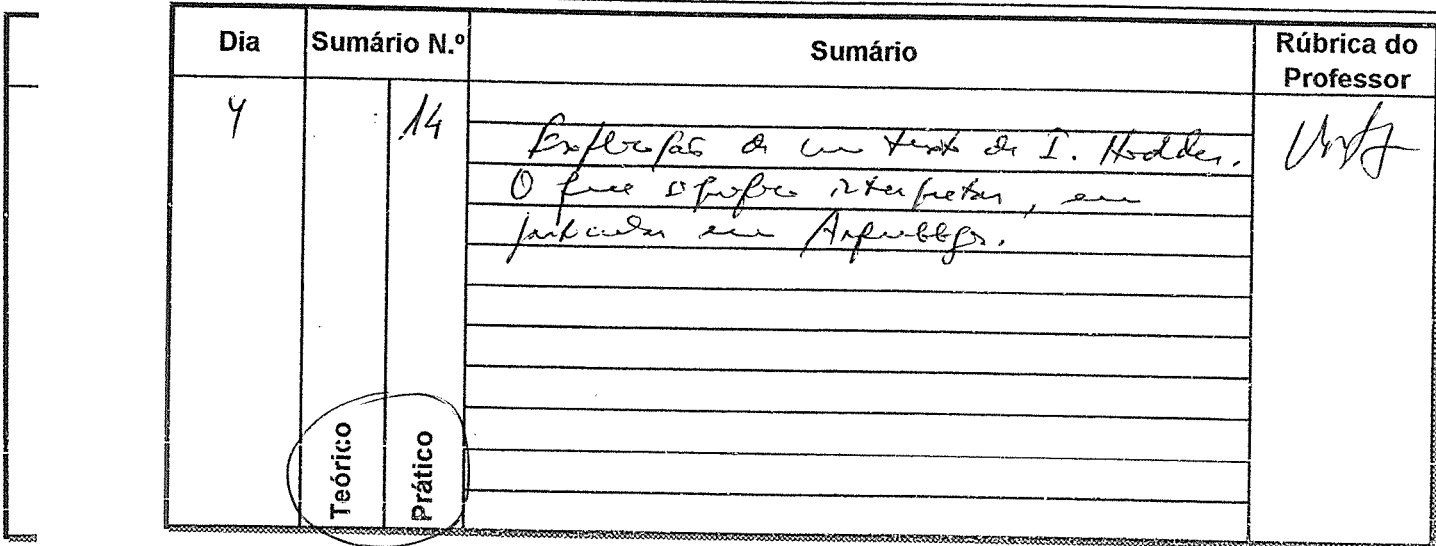 Dia
Sumário N.º
Sumário
Rúbrica do
Professor
4
14
Exploração de um texto de I. Hodder.
O que significa interpretar, em
particular em Arqueologia.
Teórico
Prático